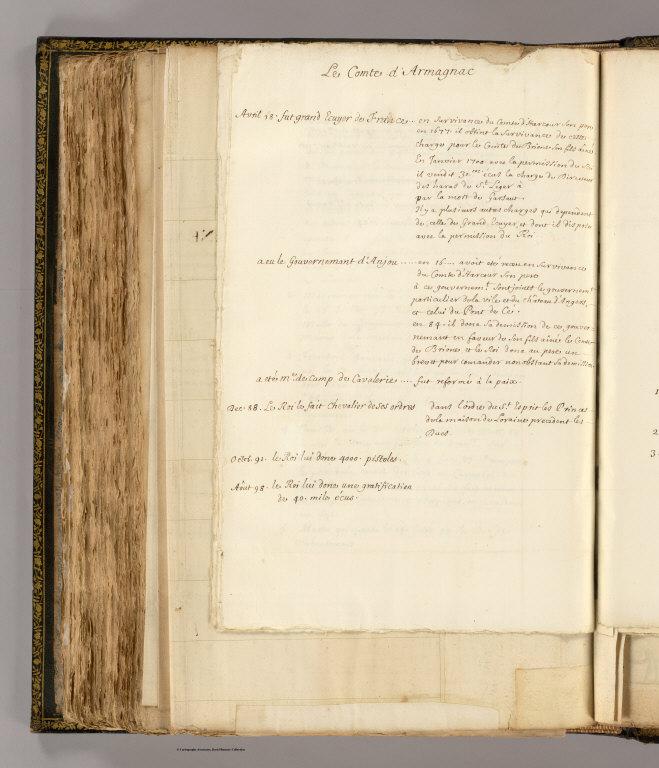 Le Comte d'Armagnac
Avril 58. fut grand Ecuyer de France .. en survivance du Comte d'Harcour son pere
en 1677. il obtint la survivance de cette
charge pour le Comte de Brione son fils ainé
En Janvier 1700 avec la permission du Roi
il vendit écus la charge de Directeur
des haras de St. Leger à
par la mort de Garsaut.
Il y a plusieurs autres charges qui dependent
de celle de Grand Ecuyer, et dont il dispose
avec la permission du Roi
a eu le Gouvernement d'Anjou ..... en 16.... avoit eté receu en survivance
du Comte d'Harcour son pere
à ce gouvernemt. sont joints le gouvernemt.
particulier de la vile et du château d'Angers,
et celui du Pont de Cé.
en 84. il done sa demission de ce gouver-
nement en faveur de son fils ainée le Comte
de Brione et le Roi done au pere un
brevet pour comander nonobstant sa demission
a eté Me. de Camp de Cavalerie .... fut reformé à la paix.
Dec. 88. Le Roi le fait Chevalier de ses ordres
dans l'ordre du St. Esprit les Princes
de la maison de Loraine precedent les
Ducs.
Octob. 92. le Roi lui done 4000. pistoles.
Aôut 98. le Roi lui done une gratification
de 40. mile écus.
2
3.